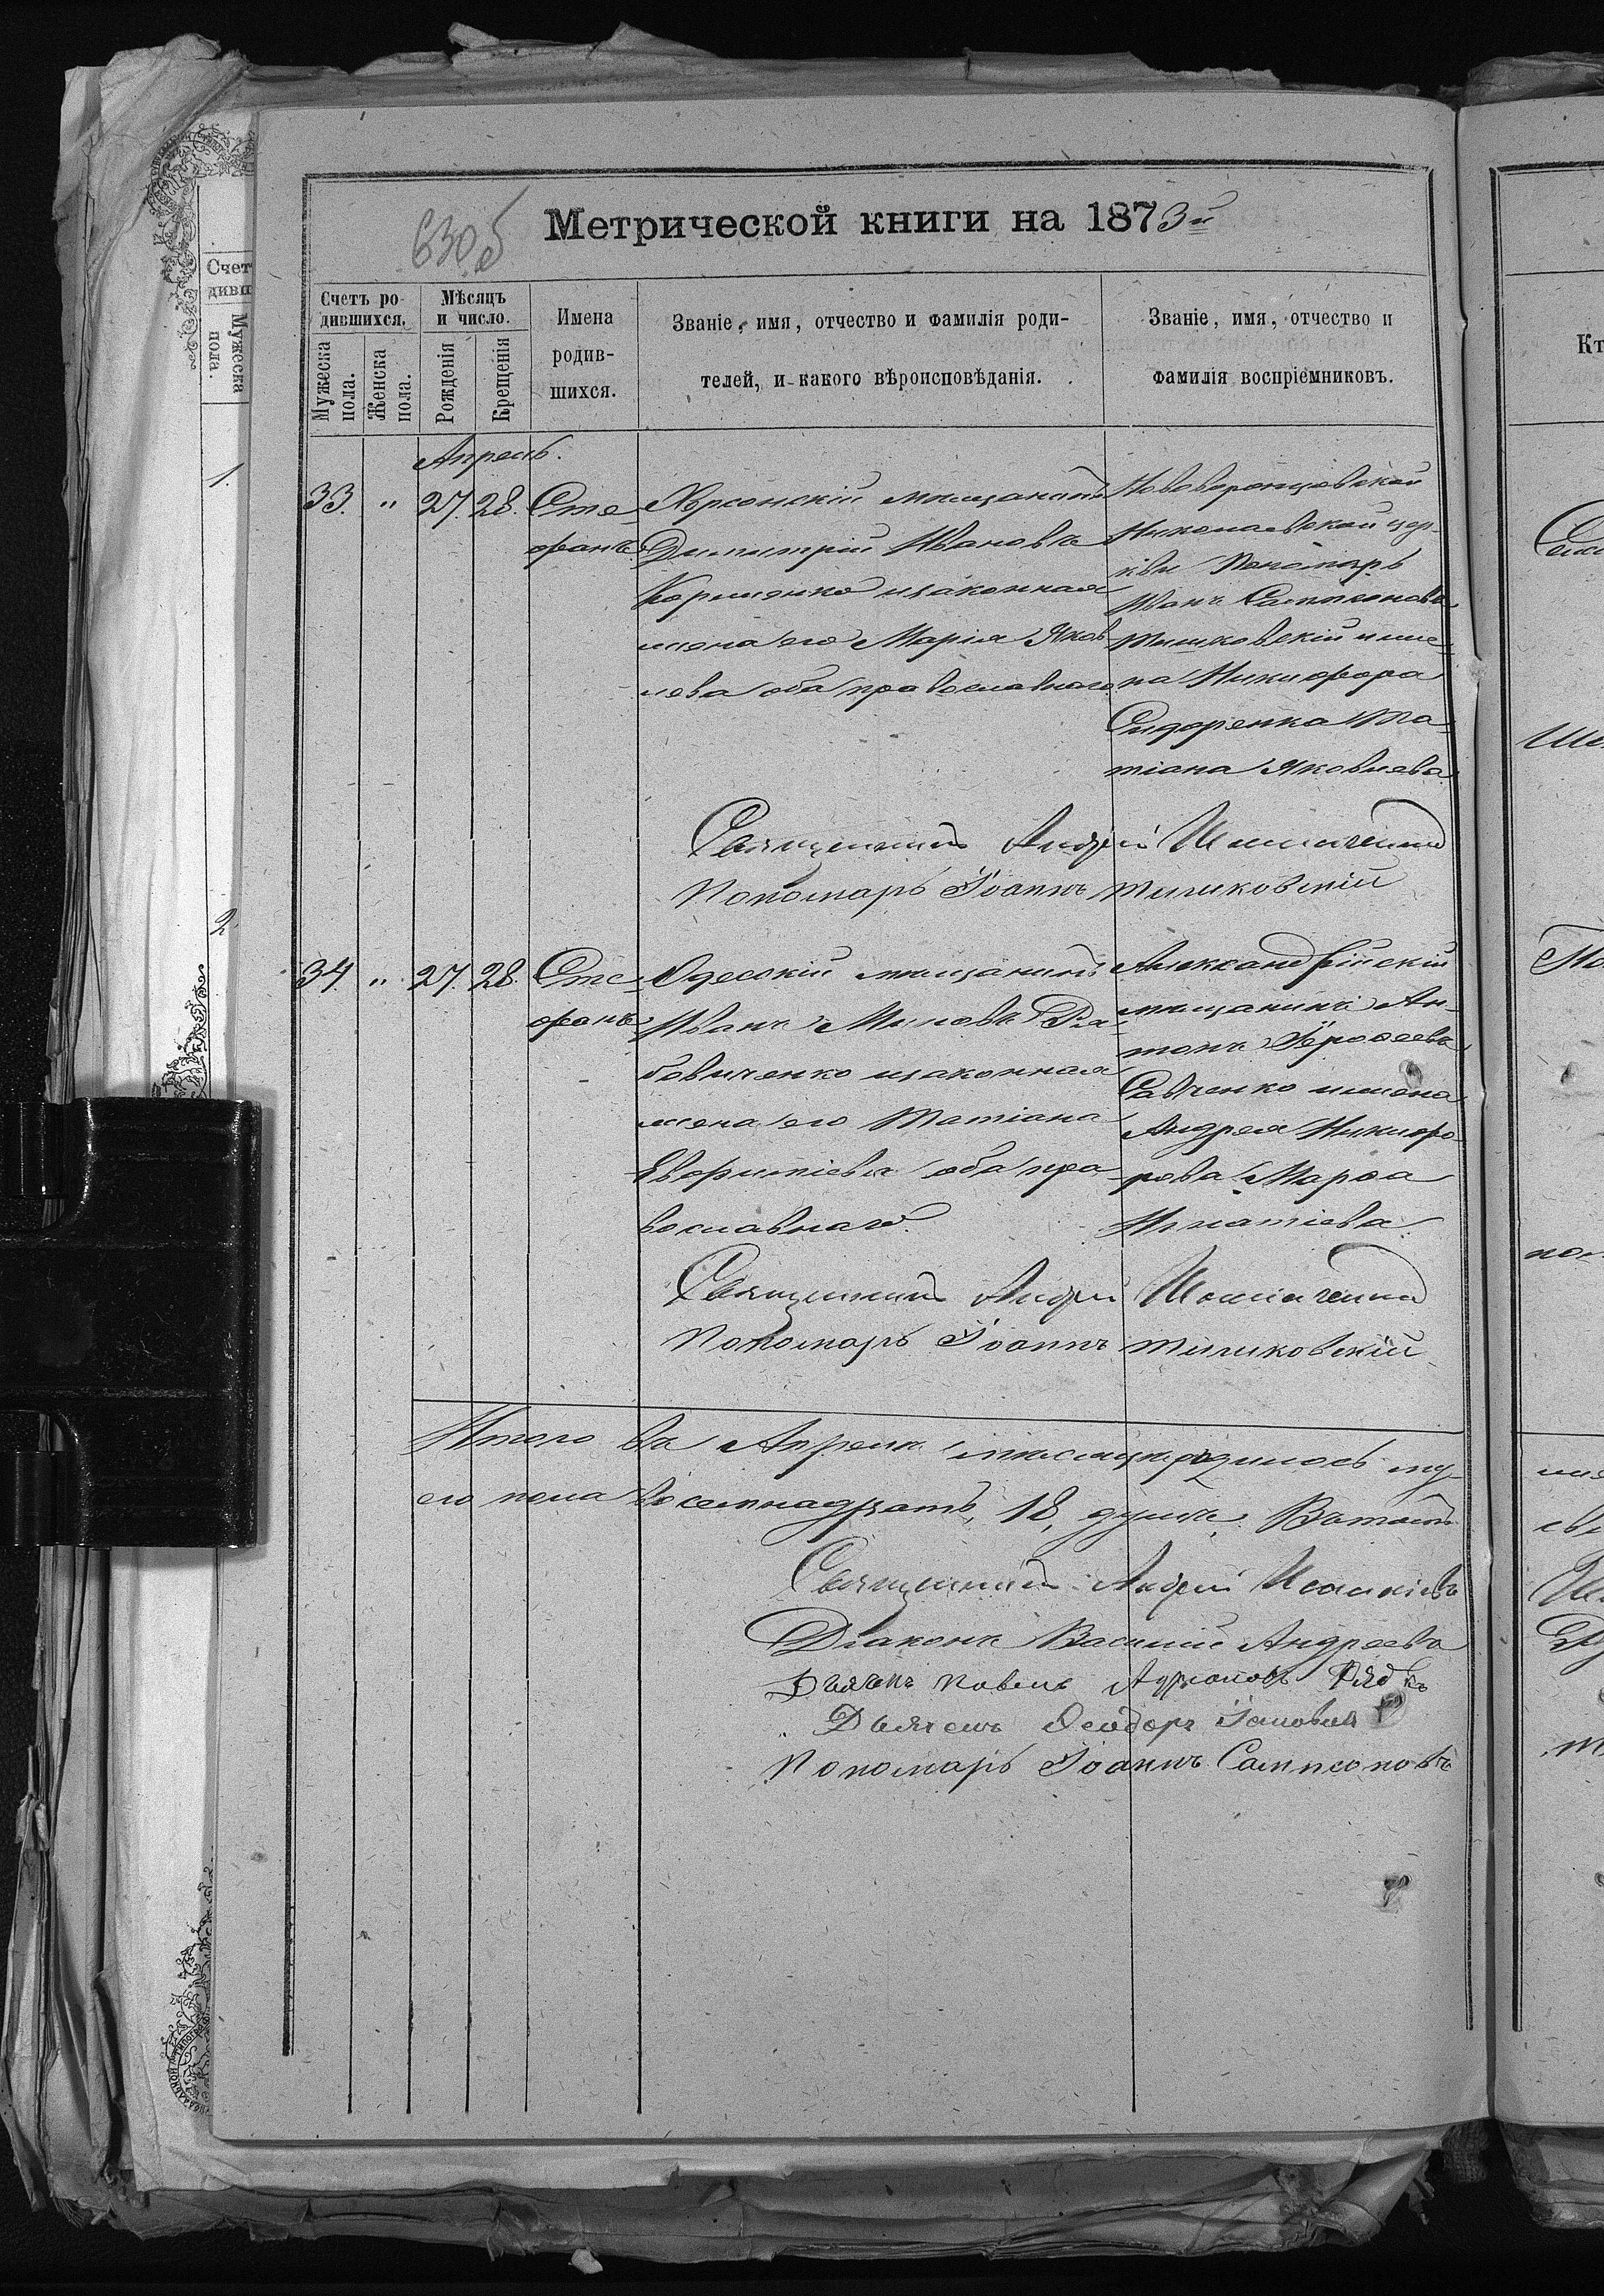 630б
Метрической книги на 1873й
Счетъ родившихся.
Мужеска пола.
Женска пола.
Мѣсяцъ и число.
Рожденія
Крещенія
Имена родившихся.
Званіе, имя, отчество и фамилія роди-
телей, и какого вѣроисповѣданія.
Званіе, имя, отчество и
фамилія воспріемниковъ.
Апрель.
33. " 27. 28. Сте-
фанъ
Херсонскій мещанинъ
Димитрій Ивановъ
изаконная
жена его Марія Яков-
лева оба православнаго.
Нововоронцовской
Николаевской цер-
кви Пономарь
Иванъ Сампсоновъ
Тишковскій и же-
на Никифора
Сидоренка Та-
тіана Яковлева
Священникъ Андрей
Пономарь Іоаннъ Тишковскій
34. " 27. 28. Сте-
фанъ
Одесскій мещанинъ
Иванъ Миновъ Ря-
бовиченко изаконная
жена его Татіана
Евфиміева оба пра-
вославнаго.
Александрійскій
мещанинъ Ан-
тонъ Ерофеевъ
Савченко и жена
Андрея Никифо-
рова Марѳа
Игнатіева
Священникъ Андрей
Пономарь Іоаннъ Тишковскій
Итого въ Апреле месяце родилось му-
его пола восемнадцать, 18, душъ. Вътомъ
Священникъ Андрей
Діаконъ Василій Андреевъ
Дьячекъ Павелъ
Дьячекъ Ѳеодоръ
Пономарь Іоаннъ Сампсоновъ
Счет
дивш
Мужеска
пола.
1.
2
Кт